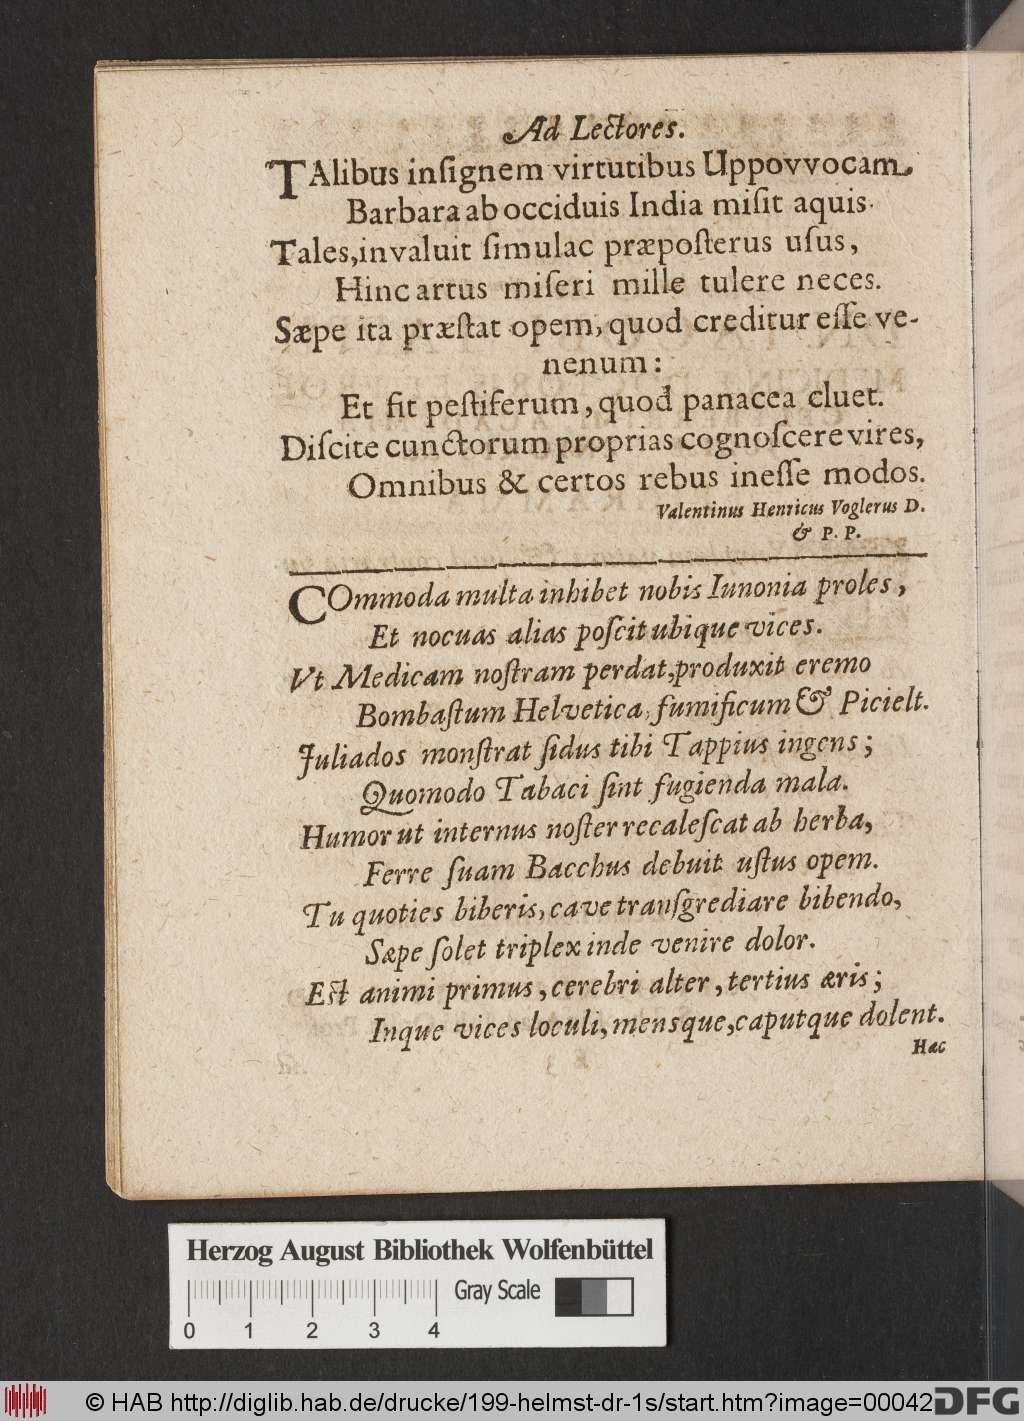 Ad Lectores.
TAlibus inſignem virtutibus Uppovvocam
Barbara ab occiduis India miſit aquis.
Tales, invaluit ſimulac præpoſterus uſus,
Hinc artus miſeri mille tulere neces.
Sæpe ita præſtat opem, quod creditur eſſe ve-
nenum:
Et fit peſtiferum, quod panacea cluet.
Diſcite cunctorum proprias cognoſcere vires,
Omnibus & certos rebus ineſſe modos.
Valentinus Henricus Voglerus D.
& P. P.
COmmoda multa inhibet nobis Iunonia proles,
Et nocuas alias poſcit ubique vices.
Vt Medicam noſtram perdat, produxit eremo
Bombaſtum Helvetica, fumificum & Picielt.
Juliados monſtrat ſidus tibi Tappius ingens;
Quomodo Tabaci ſint fugienda mala.
Humor ut internus noſter recaleſcat ab herba,
Ferre ſuam Bacchus debuit uſtus opem.
Tu quoties biberis, cave tranſgrediare bibendo,
Sæpe ſolet triplex inde venire dolor.
Eſt animi primus, cerebri alter, tertius æris;
Inque vices loculi, mensque, caputque dolent.
Hæc
Herzog August Bibliothek Wolfenbüttel
Gray Scale
0 1 2 3 4
© HAB http://diglib.hab.de/drucke/199-helmst-dr-1s/start.htm?image=00042
DFG